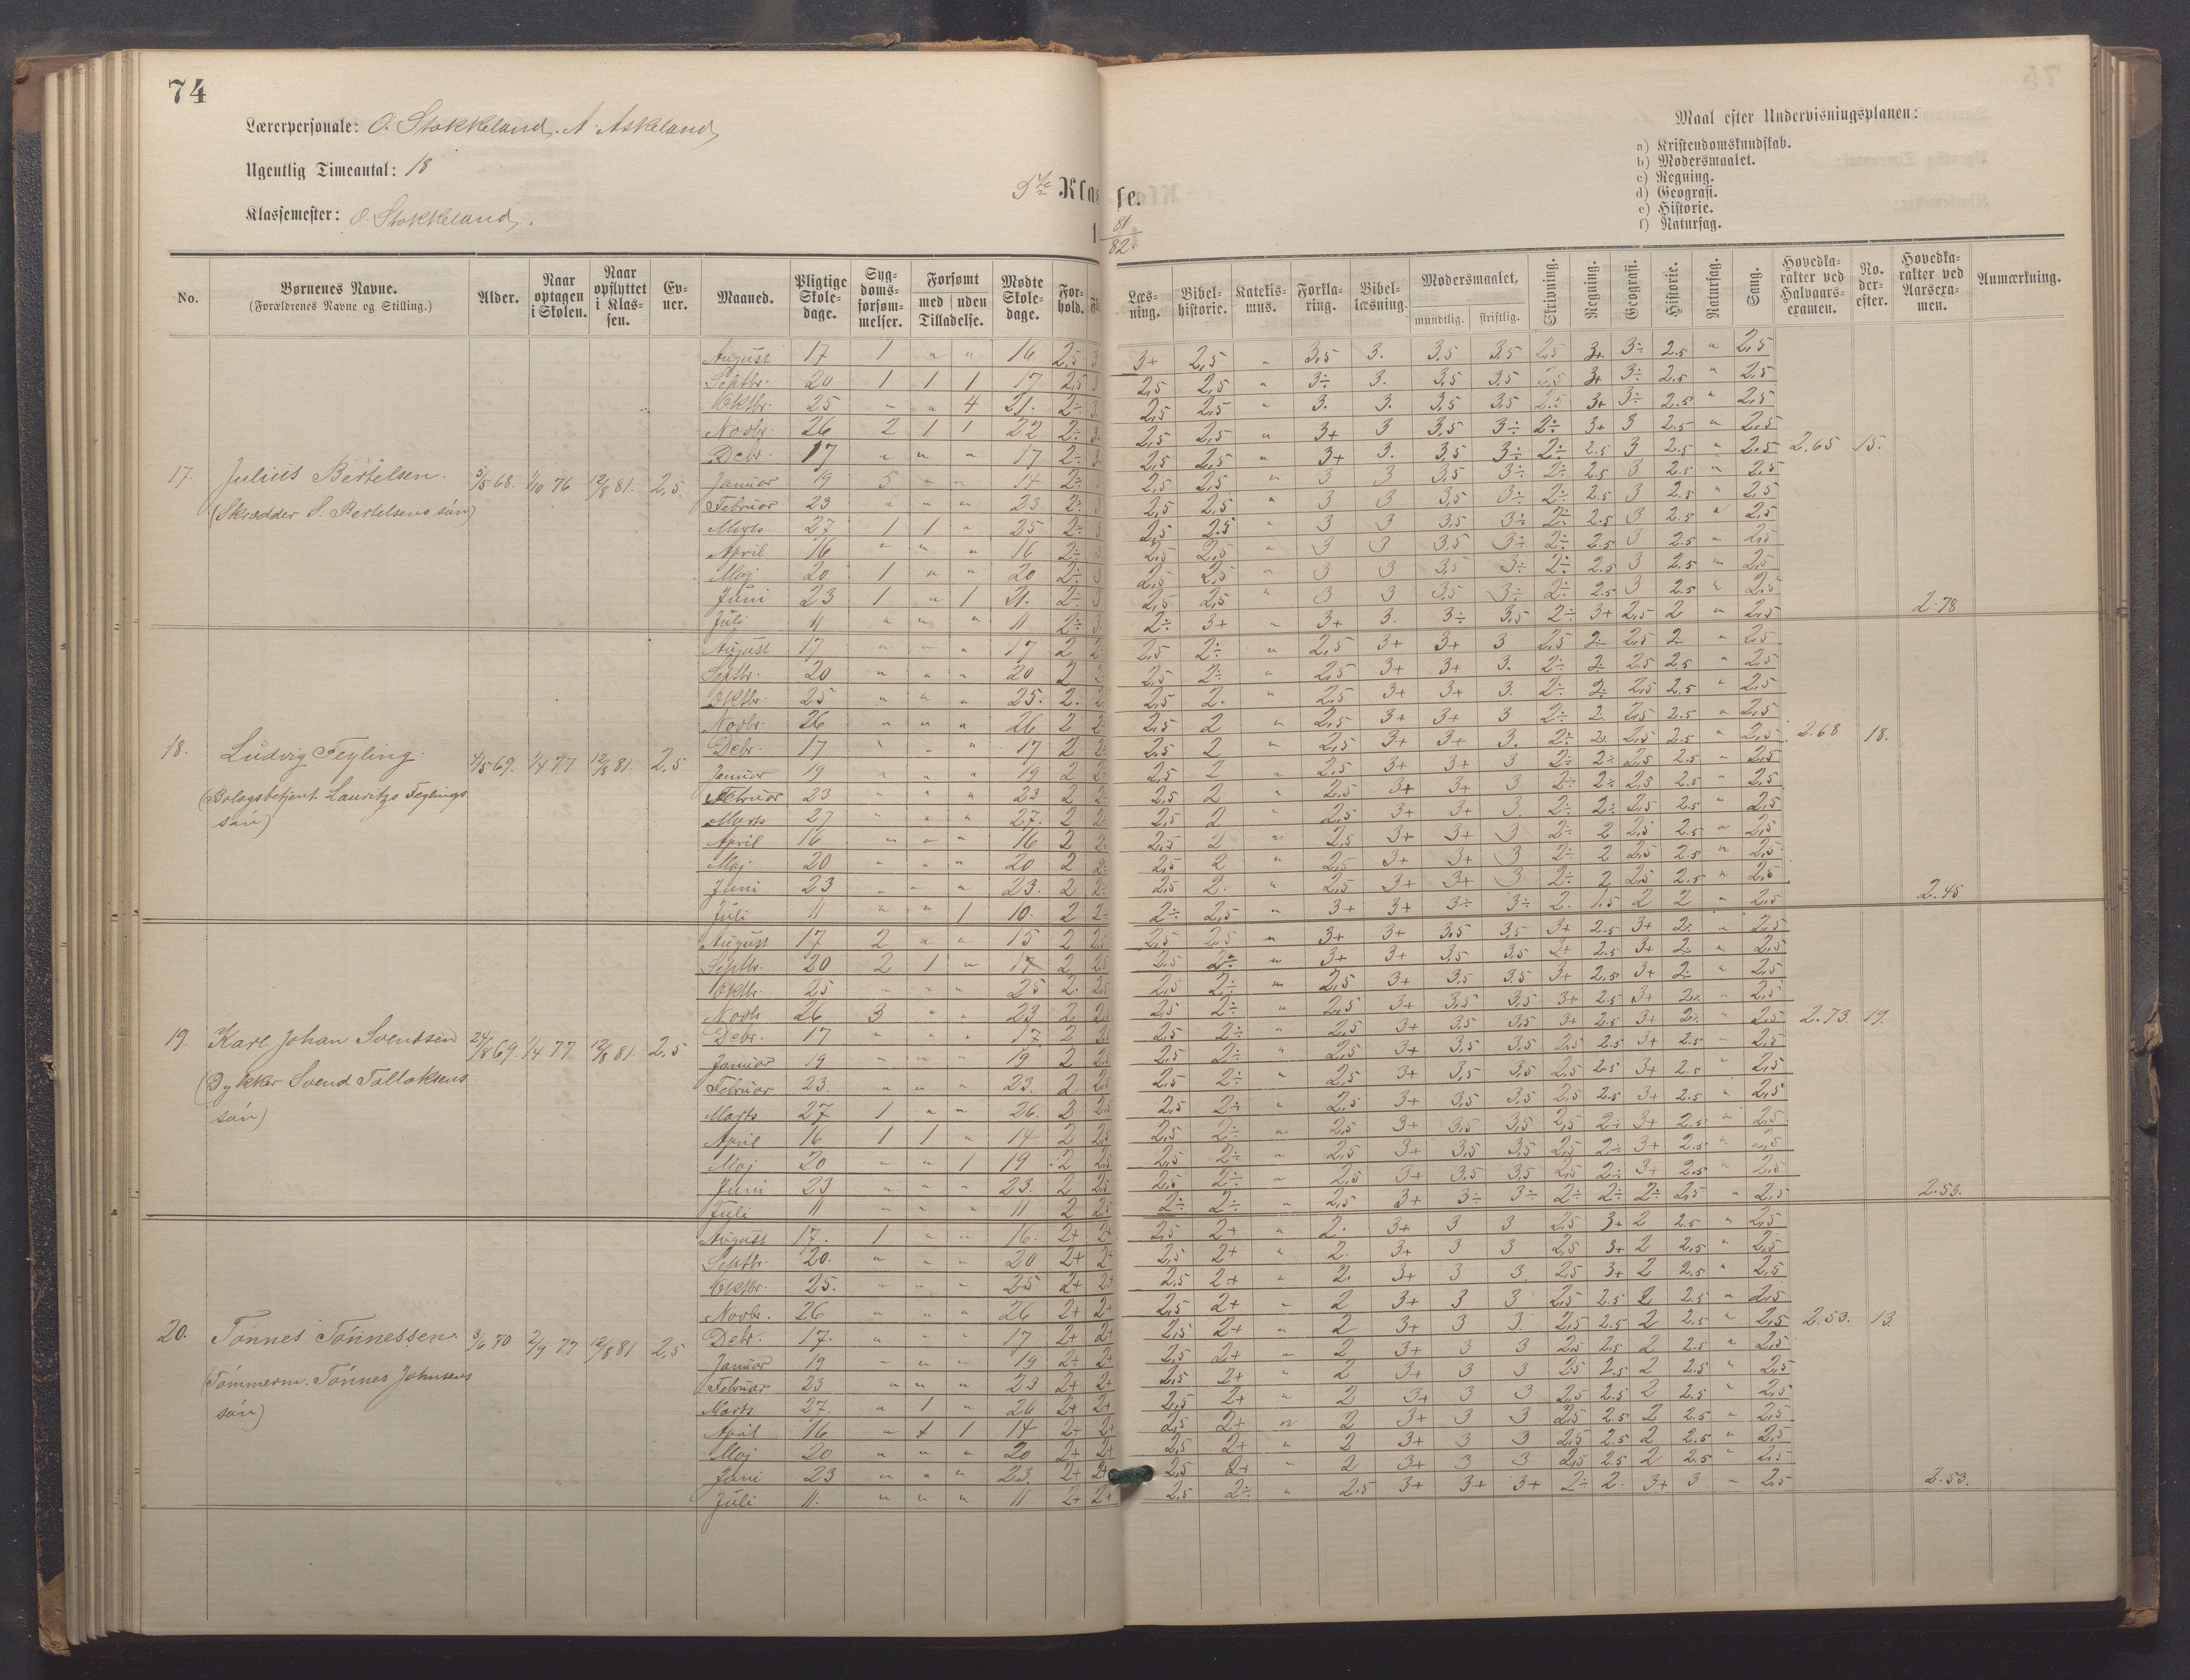 74
Lærerpersonale: O. Stokkeland, A. Askeland,
Ugentlig Timeantal: 18
Klassemester: O. Stokkeland,
5te Klasse.
1 81/82.
Maal efter Undervisningsplanen:
a) Kristendomskundskab.
b) Modersmaalet.
c) Regning.
d) Geografi.
e) Historie.
f) Naturfag.
No. | Børnenes Navne. (Forældrenes Navne og Stilling.) | Alder. | Naar optagen i Skolen. | Naar opflyttet i Klassen. | Evner. | Maaned. | Pligtige Skoledage. | Sygdomsforsømmelser. | Forsømt med uden Tilladelse. | Mødte Skoledage. | Forhold. | Læsning. | Bibelhistorie. | Katekismus. | Forklaring. | Bibellæsning. | Modersmaalet, mundtlig. skriftlig. | Skrivning. | Regning. | Geografi. | Historie. | Naturfag. | Sang. | Hovedkarakter ved Halvaarsexamen. | No. derefter. | Hovedkarakter ved Aarsexamen. | Anmærkning.
17. Julius Bertelsen. 5/5 68. 1/10 76 12/8 81. 2,5. 2.65 15. 2.78
(Skrædder S. Bertelsens sön)
August 17 1 " " 16 2,5 3 3+ 2,5 " 3,5 3. 3,5 3,5 2,5 3+ 3÷ 2.5 " 2,5
Septbr. 20 1 1 1 17 2,5 3 2,5 2,5 " 3÷ 3. 3,5 3,5 2,5 3+ 3÷ 2.5 " 2,5
Oktbr. 25 " " 4 21. 2÷ 3. 2,5 2,5 " 3. 3. 3,5 3,5 2.5 3+ 3÷ 2.5 " 2,5
Novbr. 26 2 1 1 22 2÷ 3. 2,5 2,5 " 3+ 3 3,5 3÷ 2÷ 3+ 3 2.5 " 2,5
Debr. 17 " " " 17 2÷ 3. 2,5 2,5 " 3+ 3. 3,5 3÷ 2÷ 2.5 3 2.5 " 2,5
Januar 19 5 " " 14 2÷ 3 2,5 2,5 " 3 3 3,5 3÷ 2÷ 2.5 3 2.5 " 2,5
Februar 23 " " " 23 2÷ 3 2,5 2,5 " 3 3 3,5 3÷ 2÷ 2.5 3 2.5 " 2,5
Marts 27 1 1 " 25 2÷ 3 2,5 2.5 " 3 3 3,5 3÷ 2÷ 2.5 3 2.5 " 2,5
April 16 " " " 16 2÷ 3 2,5 2,5 " 3 3 3,5 3÷ 2÷ 2.5 3 2.5 " 2,5
Maj 20 1 " " 20 2÷ 3 2,5 2,5 " 3 3 3,5 3÷ 2÷ 2.5 3 2.5 " 2,5
Juni 23 1 " 1 21. 2÷ 3 2,5 2,5 " 3 3 3,5 3÷ 2÷ 2.5 3 2.5 " 2,5
Juli 11 " " " 11 2÷ 3. 2÷ 3+ " 3+ 3. 3÷ 3,5 2÷ 3+ 2,5 2 " 2,5
18. Ludvig Feyling. 4/5 69. 1/4 77 12/8 81. 2,5 2.68 18. 2.45
(Bologsbetjent Lauritzs Feylings
sön)
August 17 " " " 17 2 2÷ 2,5 2÷ " 2,5 3+ 3+ 3 2,5 2÷ 2,5 2 " 2,5
Septbr. 20 " " " 20 2 2÷ 2,5 2÷ " 2,5 3+ 3+ 3. 2÷ 2÷ 2.5 2.5 " 2,5
Oktbr. 25 " " " 25. 2. 2÷ 2,5 2. " 2,5 3+ 3+ 3. 2÷ 2÷ 2,5 2.5 " 2,5
Novbr 26 " " " 26 2 2÷ 2,5 2 " 2,5 3+ 3+ 3 2÷ 2. 2,5 2.5 " 2,5
Debr. 17 " " " 17 2 2÷ 2,5 2 " 2,5 3+ 3+ 3. 2÷ 2. 2,5 2.5 " 2,5
Januar 19 " " " 19 2 2÷ 2,5 2 " 2,5 3+ 3+ 3 2÷ 2÷ 2,5 2.5 " 2,5
Februar 23 " " " 23 2 2÷ 2,5 2 " 2,5 3+ 3+ 3 2÷ 2÷ 2,5 2.5 " 2,5
Marts 27 " " " 27. 2 2÷ 2,5 2 " 2,5 3+ 3+ 3. 2÷ 2÷ 2,5 2.5 " 2,5
April 16 " " " 16 2 2÷ 2,5 2 " 2,5 3+ 3+ 3 2÷ 2 2,5 2.5 " 2,5
Maj 20 " " " 20 2 2÷ 2,5 2 " 2,5 3+ 3+ 3 2÷ 2 2,5 2.5 " 2,5
Juni 23 " " " 23. 2 2÷ 2,5 2. " 2,5 3+ 3+ 3 2÷ 2 2,5 2.5 " 2,5
Juli 11 " " 1 10. 2 2÷ 2÷ 2,5 " 3+ 3+ 3÷ 3÷ 2. 1.5 2 2 " 2,5
19. Karl Johan Svendsen 24/8 69. 1/4 77 12/8 81. 2,5 2.73. 19. 2.53.
(Dykker Svend Tollaksens
sön)
August 17 2 " " 15 2 2,5 2,5 2,5 " 3+ 3+ 3,5 3,5 3+ 2.5 3+ 2÷ " 2,5
Septbr. 20 2 1 " 17 2 2,5 2,5 2÷ " 3+ 3+ 3,5 3,5 3+ 2.5 3+ 2÷ " 2,5
Oktbr. 25 " " " 25 2. 2,5 2,5 2÷ " 2,5 3+ 3,5 3,5 3+ 2.5 3+ 2÷ " 2,5
Novbr 26 3 " " 23 2 2,5 2,5 2÷ " 2,5 3+ 3,5 3,5 3+ 2.5 3+ 2÷ " 2,5
Debr. 17 " " " 17 2 2,5 2,5 2÷ " 2,5 3+ 3,5 3,5 3+ 2.5 3+ 2÷ " 2,5
Januar 19 " " " 19 2 2,5 2,5 2÷ " 2,5 3+ 3,5 3,5 2,5 2.5 3+ 2.5 " 2,5
Februar 23. " " " 23. 2 2,5 2,5 2÷ " 2,5 3+ 3,5 3,5 2,5 2.5 3+ 2.5 " 2,5
Marts 27 1 " " 26. 2 2,5 2,5 2÷ " 2,5 3+ 3,5 3,5 2,5 2.5 3+ 2.5 " 2,5
April 16 1 1 " 14 2 2,5 2,5 2÷ " 2,5 3+ 3,5 3,5 2,5 2÷ 3+ 2.5 " 2,5
Maj 20 " " 1 19 2 2,5 2,5 2÷ " 2,5 3+ 3,5 3,5 2,5 2÷ 3+ 2.5 " 2,5
Juni 23 " " " 23. 2 2,5 2,5 2÷ " 2,5 3+ 3,5 3,5 2,5 2÷ 3+ 2.5 " 2,5
Juli 11 " " " 11 2 2,5 2÷ 2÷ " 2,5 3+ 3÷ 3÷ 2÷ 2÷ 2÷ 2,5 " 2,5
20. Tönnes Tönnessen. 3/6 70 2/9 77 12/8 81 2,5 2.53. 13. 2.53.
(Tömmerm. Tönnes Johnsens
sön)
August 17. 1 " " 16. 2+ 2+ 2,5 2+ " 2. 3+ 3 3 2,5 3+ 2 2.5 " 2,5
Septbr. 20. " " " 20 2+ 2+ 2,5 2+ " 2. 3+ 3 3 2,5 3+ 2 2.5 " 2,5
Oktbr. 25. " " " 25 2+ 2+ 2,5 2+ " 2. 3+ 3 3. 2,5 3+ 2 2.5 " 2,5
Novbr. 26 " " " 26 2+ 2+ 2,5 2+ " 2 3+ 3 3 2,5 2.5 2 2.5 " 2,5
Debr. 17. " " " 17 2+ 2+ 2,5 2+ " 2 3+ 3 3. 2,5 2.5 2 2.5 " 2,5
Januar 19 " " " 19 2+ 2+ 2,5 2+ " 2 3+ 3 3 2,5 2.5 2 2.5 " 2,5
Februar 23 " " " 23 2+ 2+ 2,5 2+ " 2 3+ 3 3 2,5 2.5 2 2.5 " 2,5
Marts 27. " 1 " 26 2+ 2+ 2,5 2+ " 2 3+ 3 3 2,5 2.5 2 2.5 " 2,5
April 16 " 1 1 14 2+ 2+ 2,5 2+ " 2 3+ 3 3 2,5 2.5 2 2.5 " 2,5
Maj 20 " " " 20 2+ 2+ 2,5 2+ " 2 3+ 3 3 2,5 2.5 2 2.5 " 2,5
Juni 23 " " " 23. 2+ 2+ 2,5 2+ " 2 3+ 3 3 2,5 2.5 2 2.5 " 2,5
Juli 11. " " " 11 2+ 2+ 2,5 2÷ " 2.5 3+ 3+ 3+ 2÷ 2. 3+ 3 " 2,5